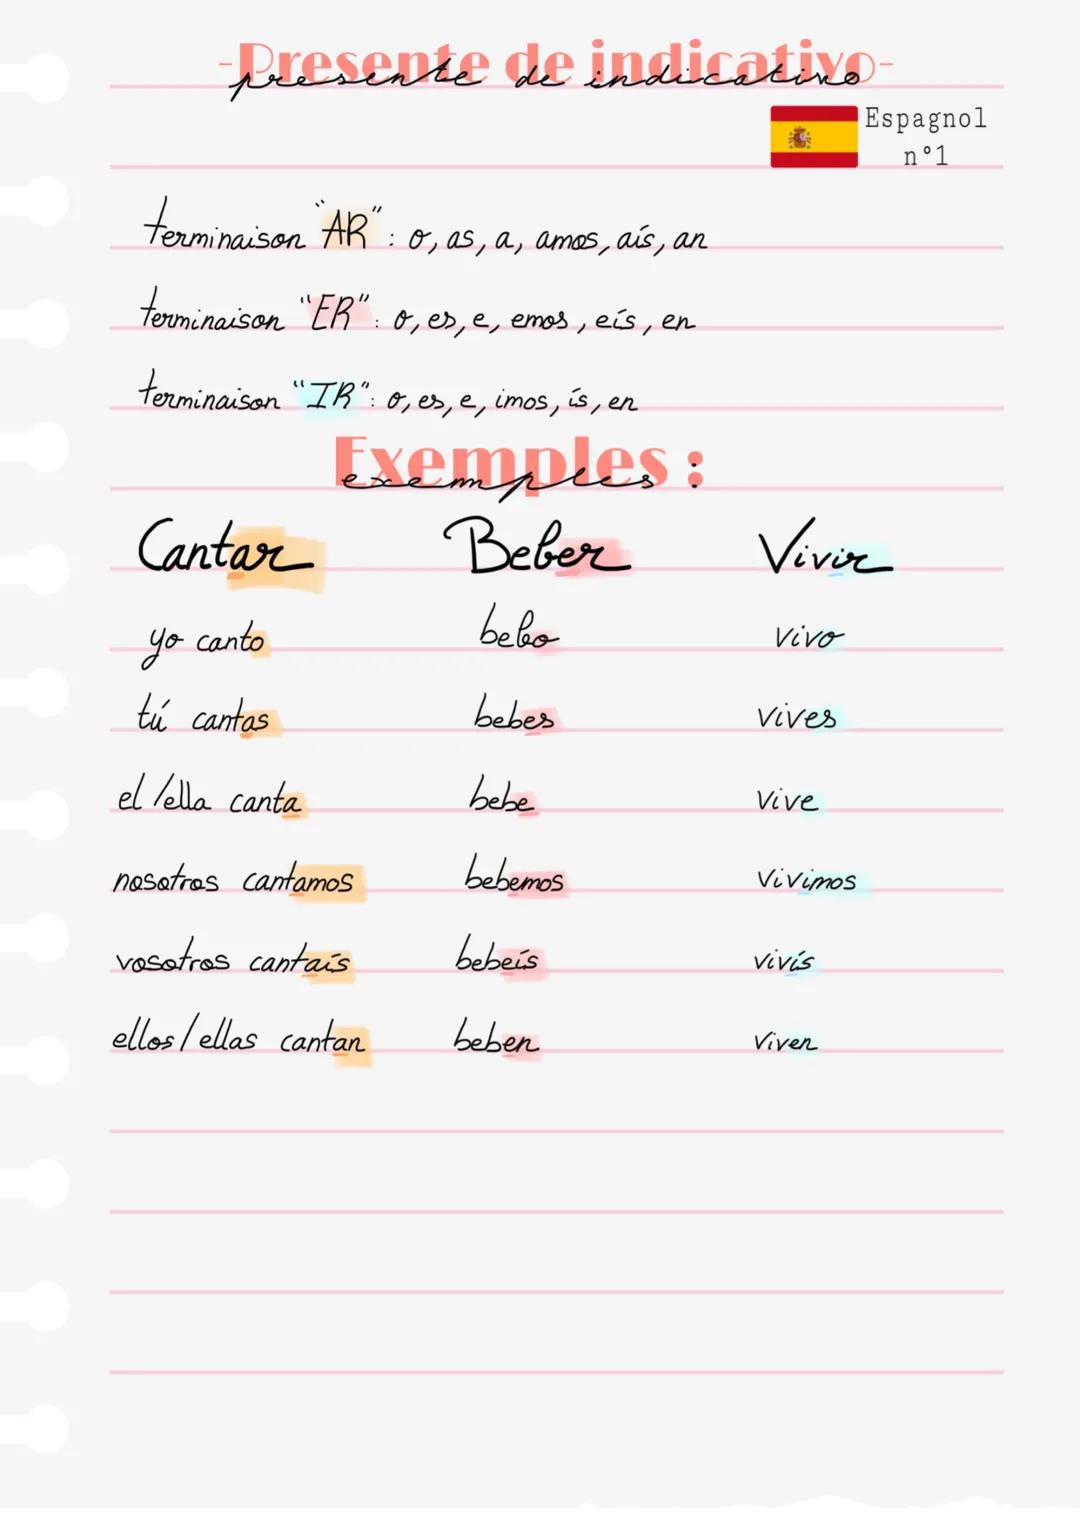 -Presente de indicativo-
presente de indicativo
Espagnol
n°1
terminaison "AR": o, as, a, amos, aís, an
terminaison "ER": o, es, e, emos, eís, en
terminaison "IR": o, es, e, imos, ís, en
Exemples :
exemples
Cantar Beber Vivir
yo canto bebo vivo
tú cantas bebes vives
el/ella canta bebe vive
nosotros cantamos bebemos vivimos
vosotros cantaís bebeís vivís
ellos/ellas cantan beben viven